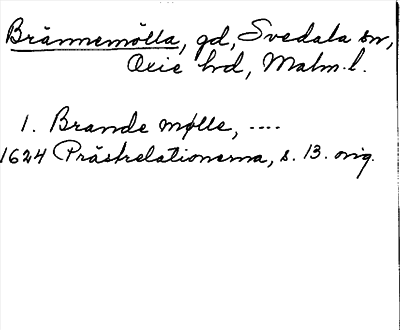 Brännemölla, gd, Svedala sn,
Oxie hd, Malm.l.
1. Brande mølle, ....
1624 Prästrelationerna, s. 13. orig.